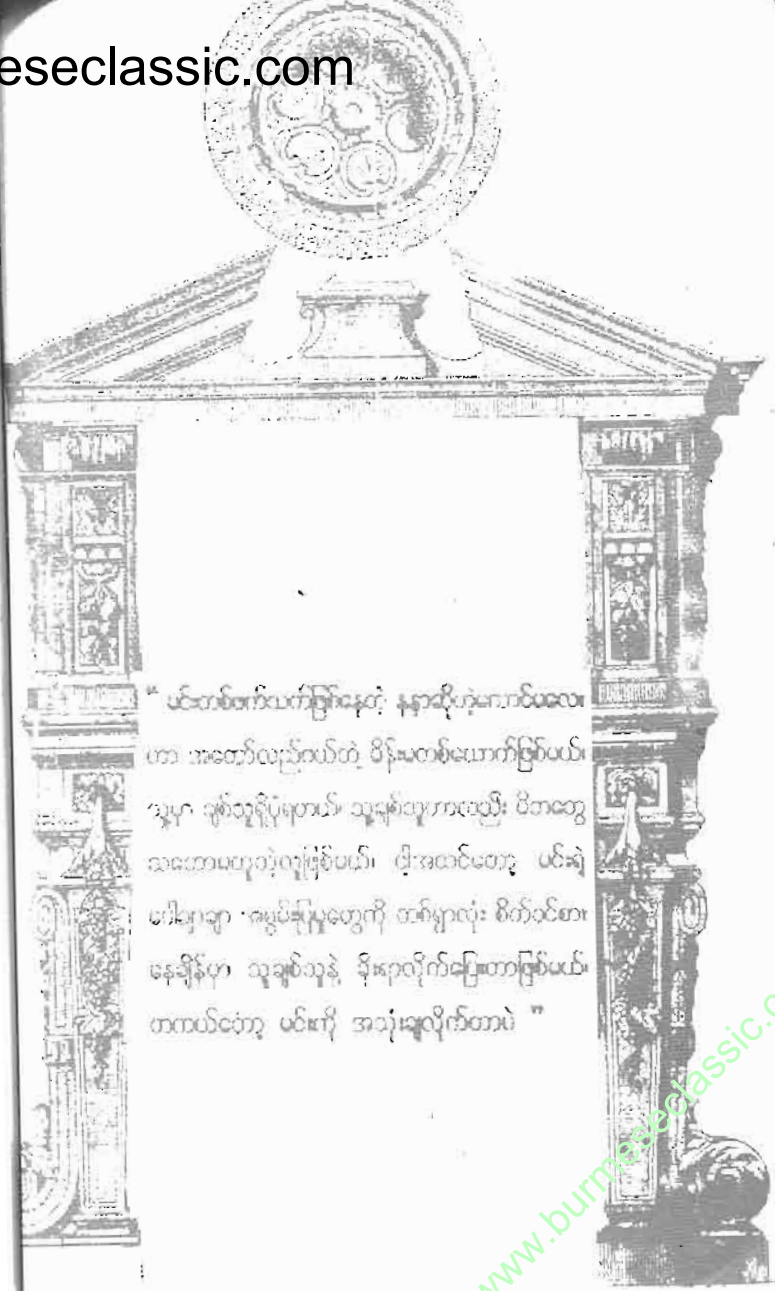 eseclassic.com
“ မင်းတစ်ဖက်သက်ဖြစ်နေတဲ့ နနာဆိုတဲ့ကောင်မလေး
ဟာ အတော်လည်ဝယ်တဲ့ မိန်းမတစ်ယောက်ဖြစ်မယ်၊
သူ့မှာ ချစ်သူရှိပုံရတယ်၊ သူ့ချစ်သူဟာလည်း မိဘတွေ
သဘောမတူတဲ့လူဖြစ်မယ်၊ ငါ့အထင်တော့ မင်းရဲ့
ပြမှုတွေကို တစ်ရွာလုံး စိတ်ဝင်စား
နေချိန်မှာ သူ့ချစ်သူနဲ့ ခိုးရာလိုက်ပြေးတာဖြစ်မယ်၊
တကယ်တော့ မင်းကို အသုံးချလိုက်တာပဲ ”
www.burmeseclassic.c